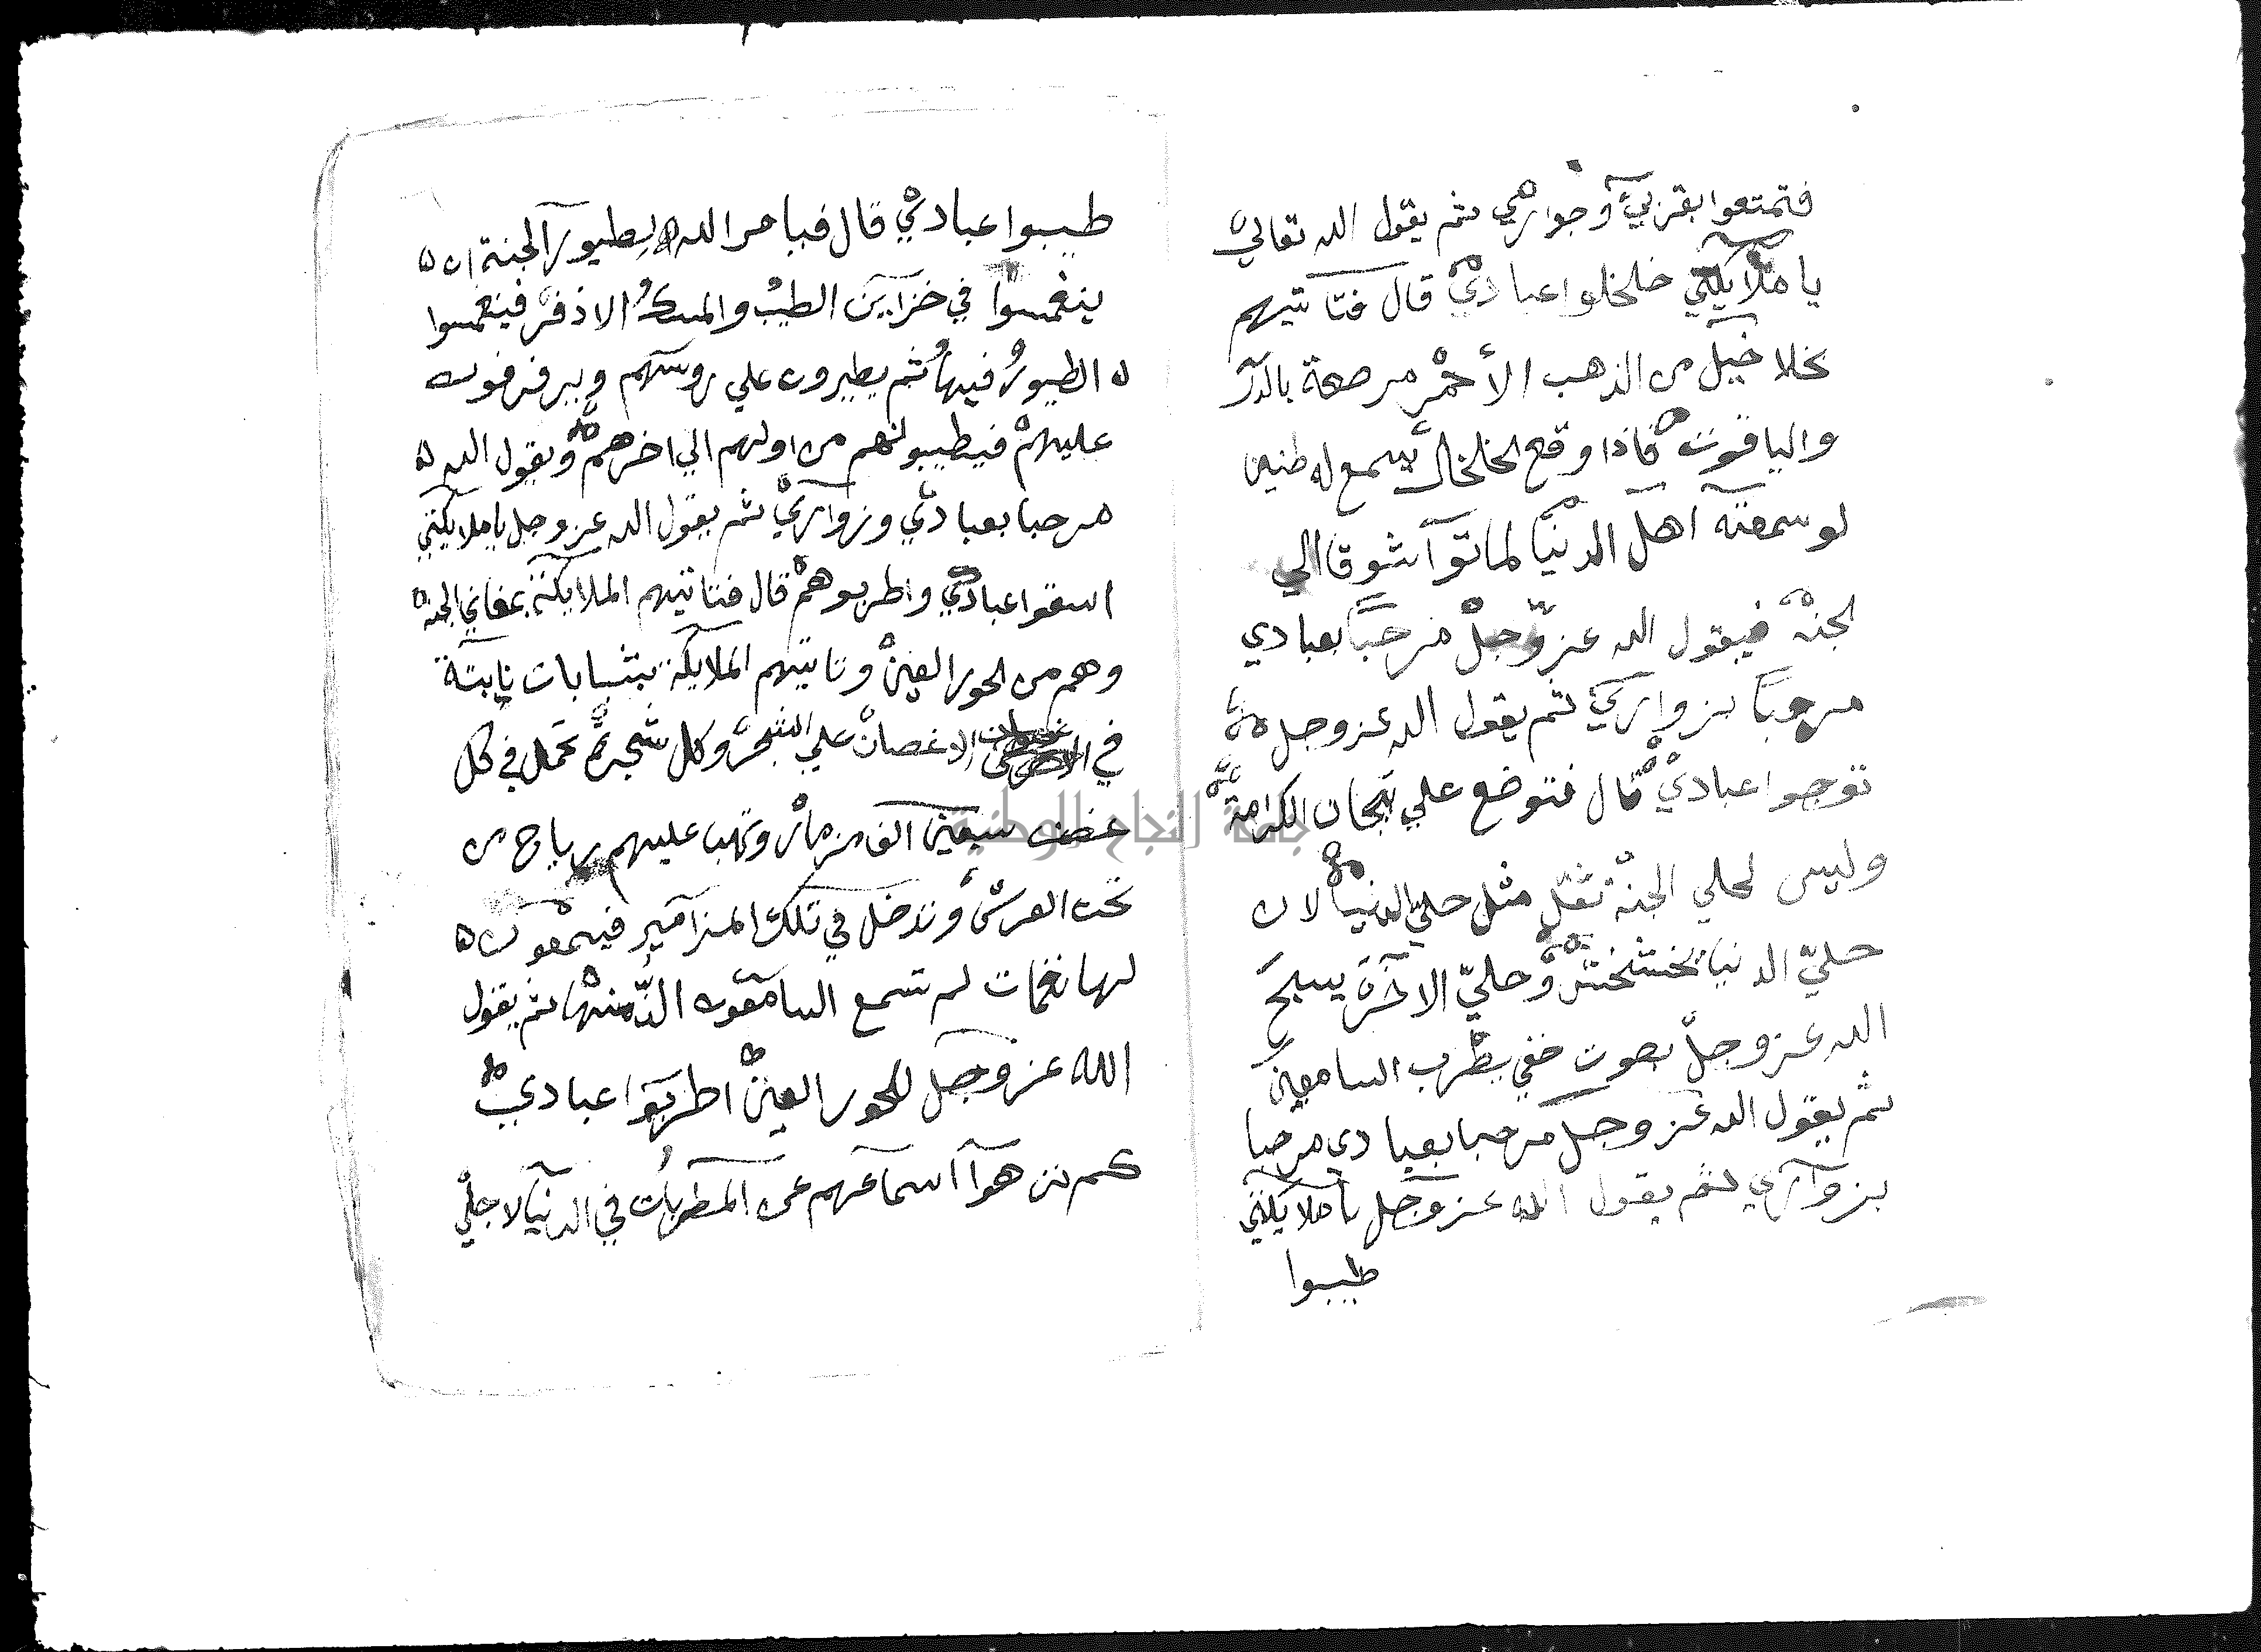 فتمتعوا بقربي وجواري ثم يقول الله تعالي
يا ملايكتي خلخلوا عبادي قال فتاتيهم
بخلاخيل من الذهب الأحمر مرصعة بالدر
والياقوت فاذا وقع الخلخال يسمع له طنين
لو سمعته اهل الدنيا لماتوا شوقا الي
الجنة فيقول الله عز وجل مرحبا بعبادي
مرحبا بزواري ثم يقول الله عز وجل
توجوا عبادي قال فتوضع علي تيجان الكرامة
وليس لحلي الجنة ثقل مثل حلي الدنيا لان
حليّ الدنيا تخشخش وحليّ الاخرة يسبح
الله عز وجل بصوت خفي يطرب السامعين
ثم يقول الله عز وجل مرحبا بعبادي مرحبا
بزواري ثم يقول الله عز وجل يا ملايكتي
طيبوا
طيبوا عبادي قال فيامر الله لطيور الجنة ان
ينغمسوا في خزاين الطيب والمسك الاذفر فينغمسوا
الطيور فيها ثم يطيرون علي روسهم ويرفرفون
عليهم فيطيبونهم من اولهم الي اخرهم ويقول الله
مرحبا بعبادي وزواري ثم يقول الله عز وجل يا ملايكتي
اسقوا عبادي واطربوهم قال فتاتيهم الملايكة بمغاني الجنة
وهم من الحور العين وتاتيهم الملايكة بشبابات نابتة
في الاغصان علي الشجر وكل شجرة تحمل في كل
غصن سبعين الف مزمار وتهب عليهم رياح من
تحت العرش وتدخل في تلك المزامير فيسمعون
لها نغمات لم تسمع السامعون الذّ منها ثم يقول
الله عز وجل للحور العين اطربوا عبادي
كم نزهوا اسماعهم عن المطربات في الدنيا لاجلي
جامعة النجاح الوطنية